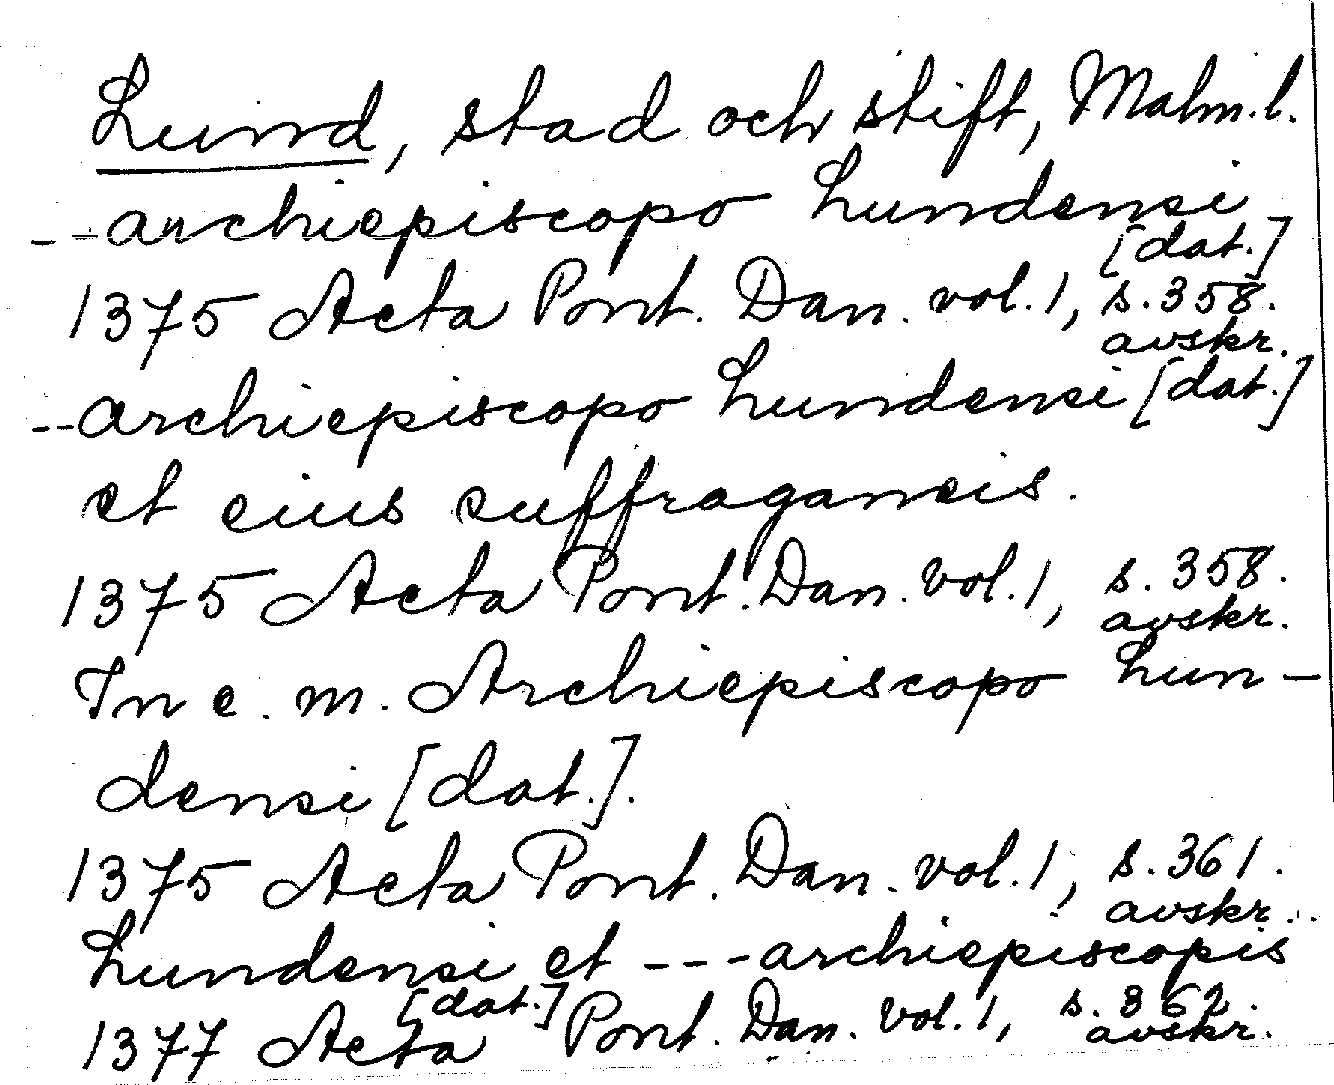 Lund, stad och stift, Malm.l.
--archiepiscopo Lundensi
[dat.]
1375 Acta Pont. Dan. vol.1, s.358.
avskr.
--archiepiscopo Lundensi [dat.]
et eius suffraganeis.
1375 Acta Pont. Dan. vol.1, s.358.
avskr.
In e. m. Archiepiscopo Lun-
densi [dat.].
1375 Acta Pont. Dan. vol.1, s.361.
avskr.
Lundensi et ---archiepiscopis
[dat.]
1377 Acta Pont. Dan. vol.1, s.362.
avskr.